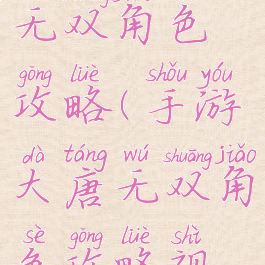 无双角色
gōng lüè shǒu yóu
攻略(手游
dà táng wú shuāng jiǎo
大唐无双角
sè gōng lüè shì
色攻略视